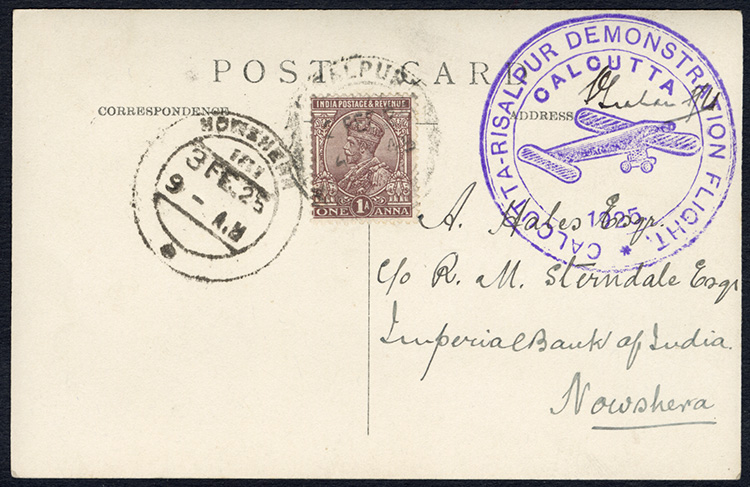 POST CARD
CORRESPONDENCE
ADDRESS
NOWSHERA
3 FE. 25
9 - A.M
INDIA POSTAGE & REVENUE
ONE 1A ANNA
CALCUTTA-RISALPUR DEMONSTRATION FLIGHT.
CALCUTTA
1925
A. Hales Esqr.
c/o R. M. Sterndale Esqr
Imperial Bank of India.
Nowshera